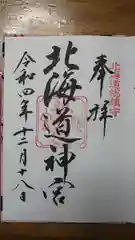 奉拝
北海道総鎮守
北海道神宮
令和四年十二月十八日